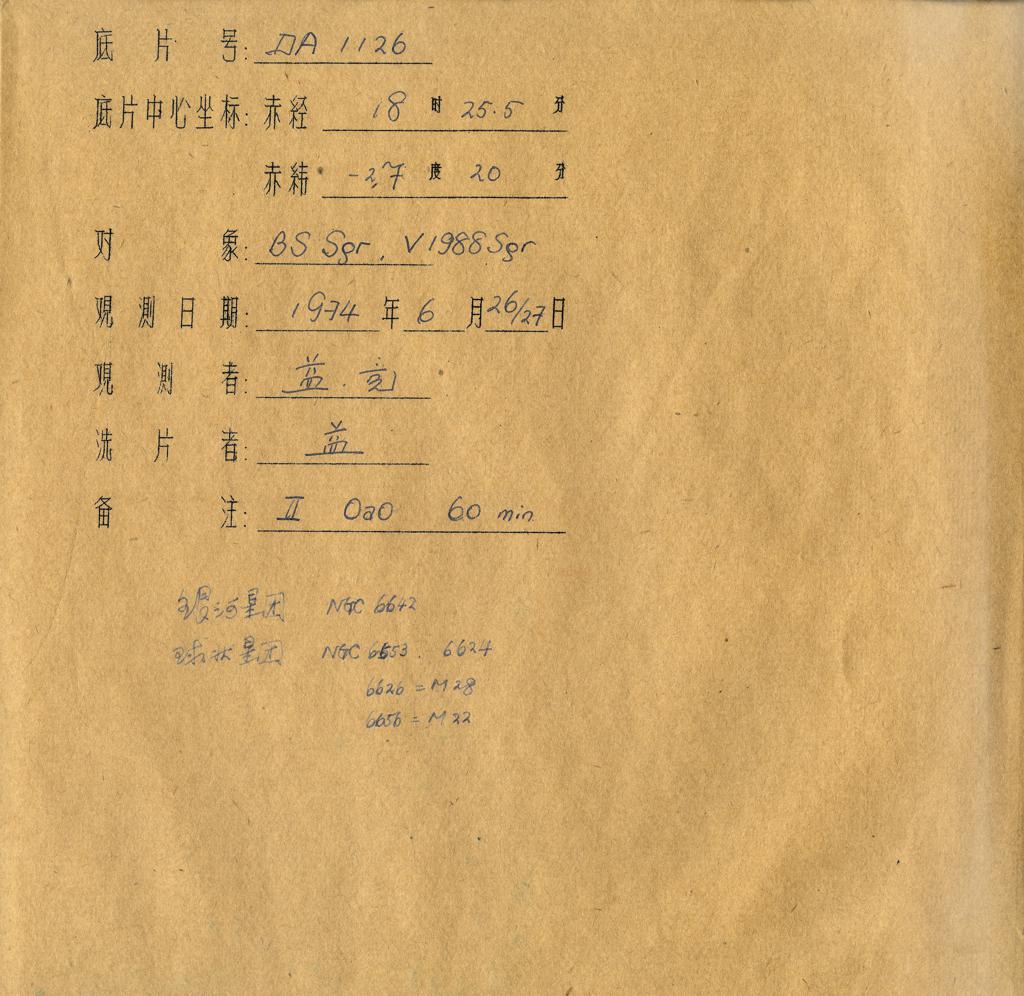 底片号: DA 1126
底片中心坐标: 赤经 18 时 25.5 分
赤纬 -27 度 20 分
对象: BS Sgr, V1988 Sgr
观测日期: 1974 年 6 月 26/27 日
观测者: 益.
洗片者: 益
备注: II OaO 60 min
银河星团 NGC 6642
球状星团 NGC 6553. 6624
6626 = M28
6656 = M22